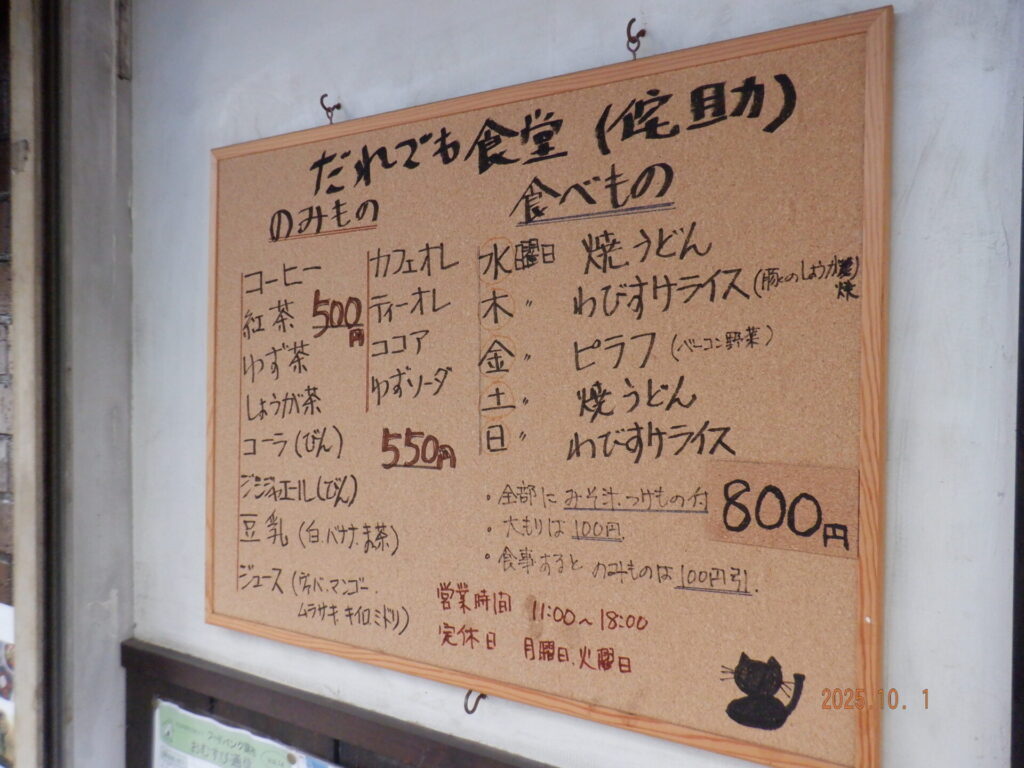 だれでも食堂 (侘助)
のみもの
コーヒー
紅茶
ゆず茶
しょうが茶
500円
コーラ(びん)
ジンジャエール(びん)
豆乳(白.バナナ.ま茶)
ジュース(グァバ.マンゴー.
ムラサキ.キイロ.ミドリ)
カフェオレ
ティーオレ
ココア
ゆずソーダ
550円
食べもの
水曜日 焼うどん
木 〃 わびすけライス(豚のしょうが焼)
金 〃 ピラフ(ベーコン野菜)
土 〃 焼うどん
日 〃 わびすけライス
・全部に みそ汁.つけもの付
800円
・大もりは 100円.
・食事すると のみものは 100円引.
営業時間 11:00〜18:00
定休日 月曜日.火曜日
2025.10. 1
おむすび通信